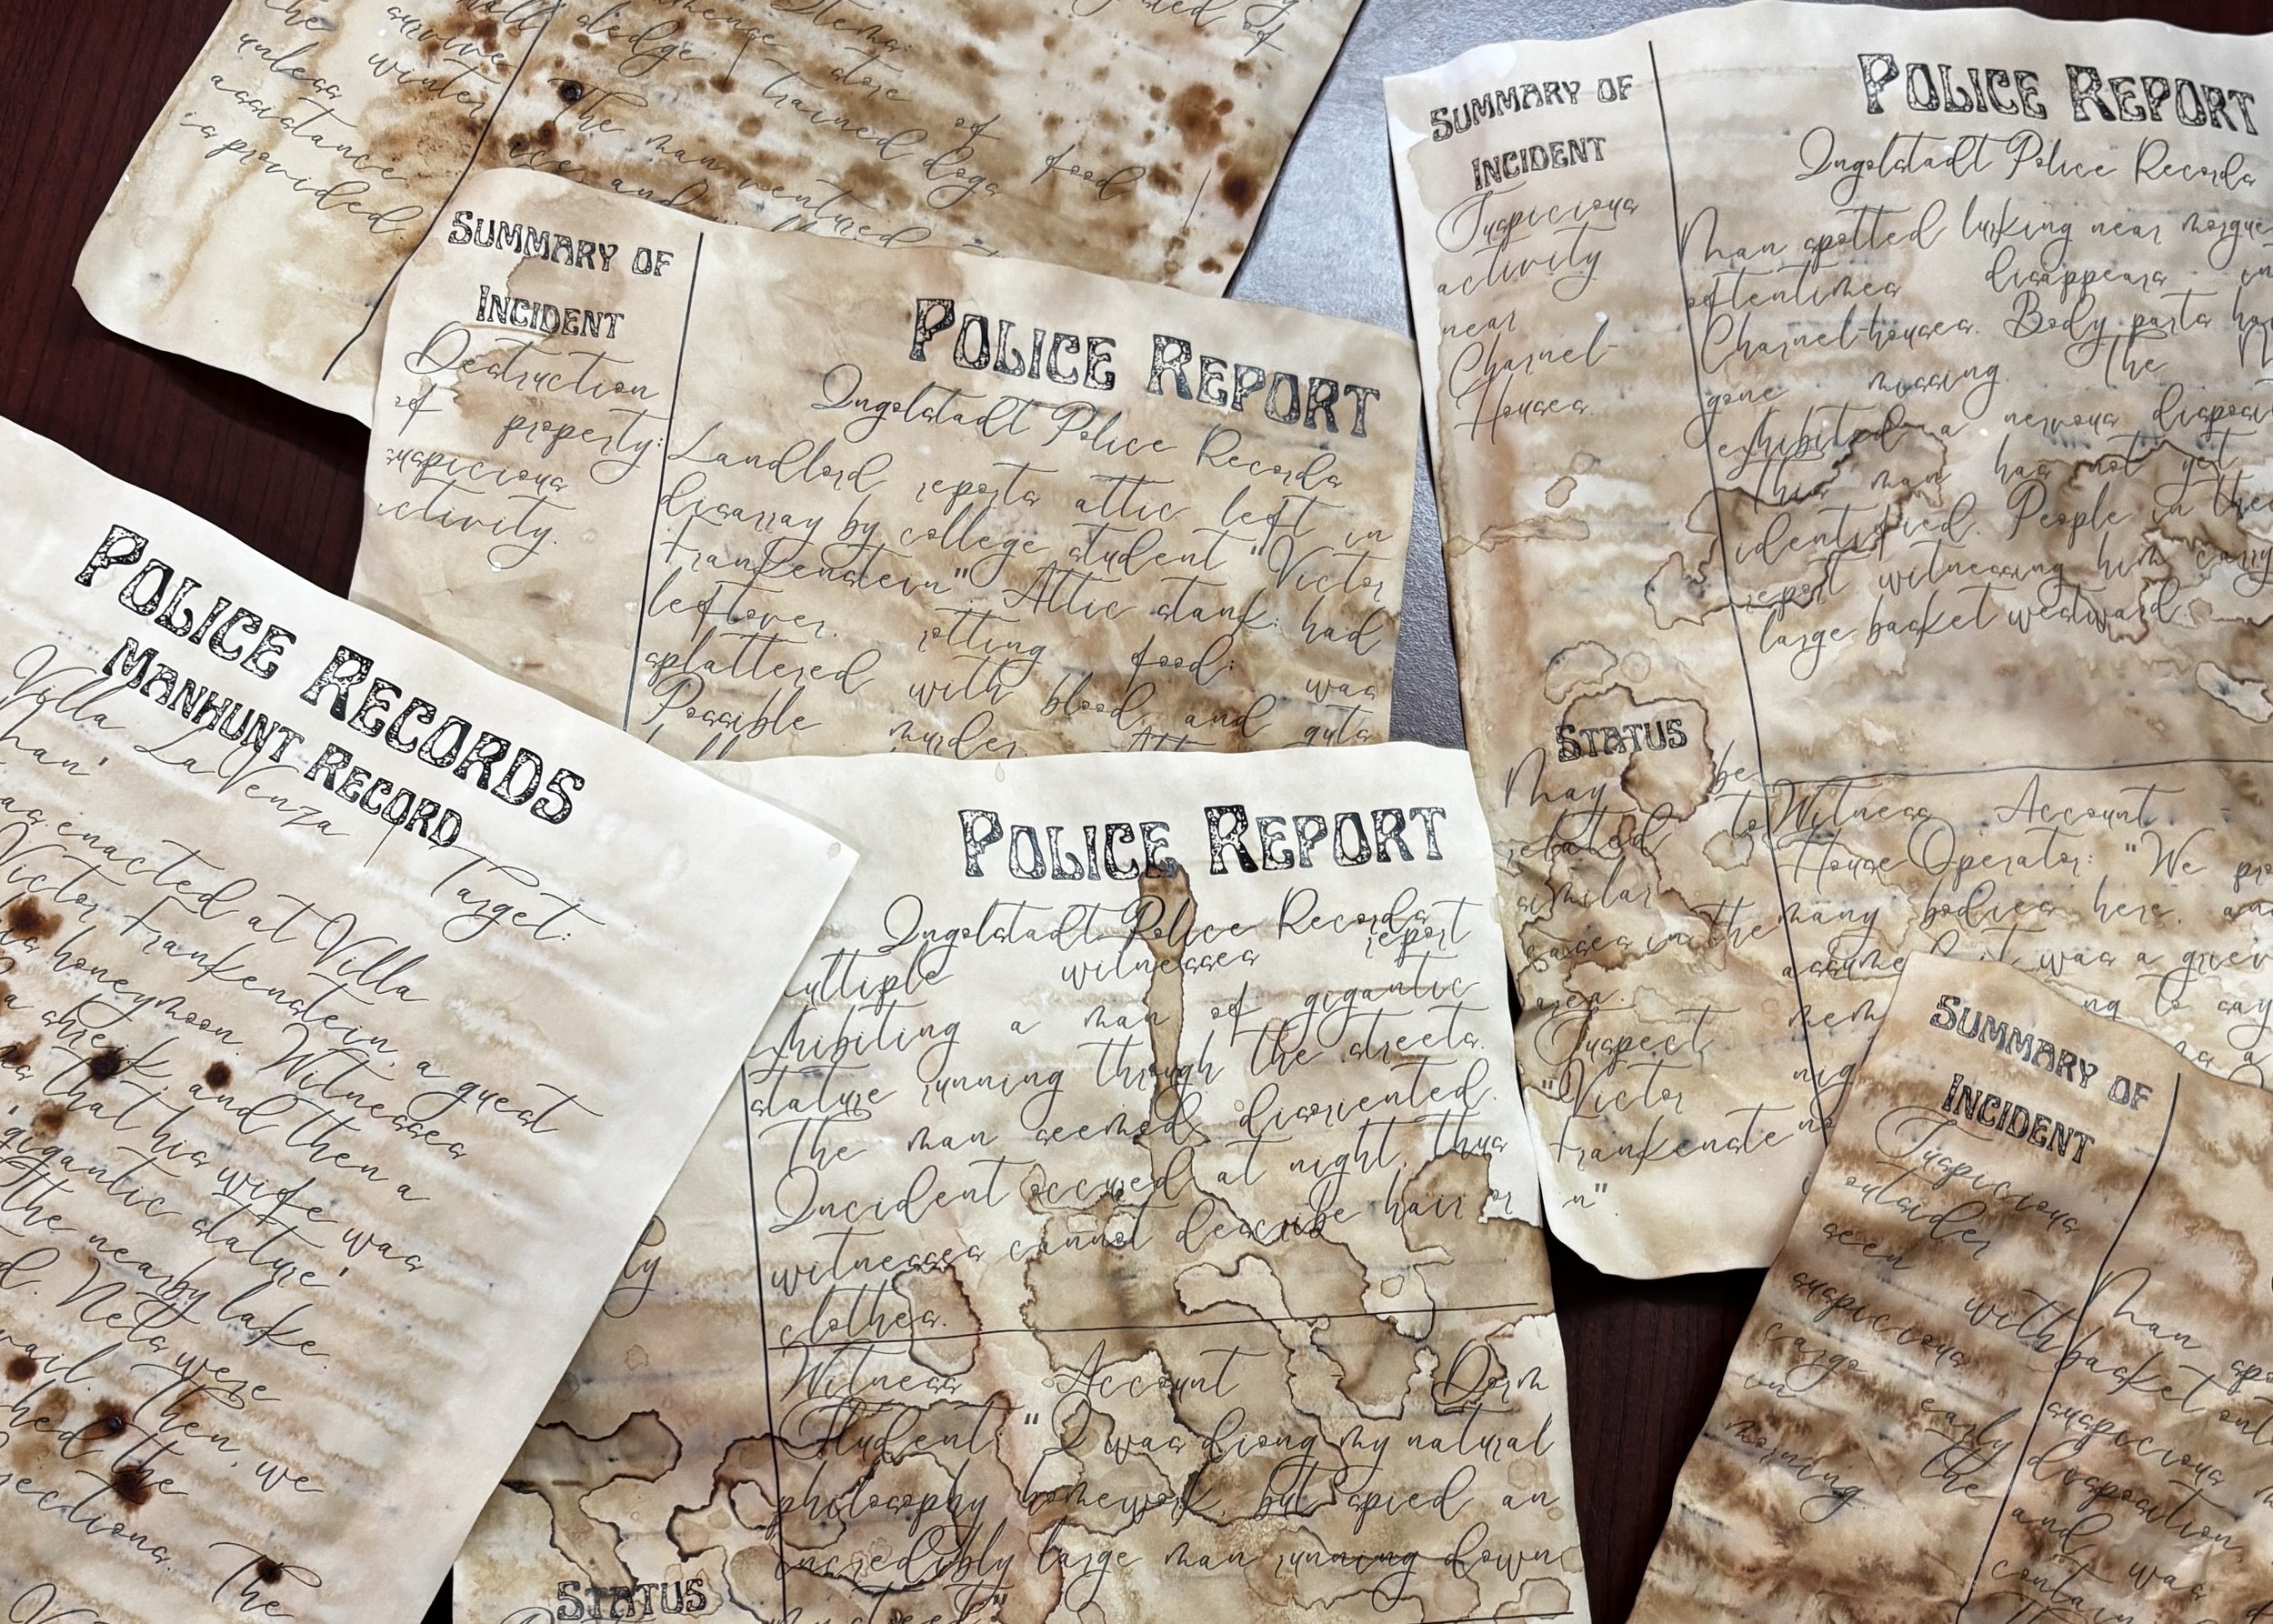 the
unless
assistance
is provided.
survive
winter
Items:
sledge
store
of food
trained dogs
The man ventured
ice and
SUMMARY OF
INCIDENT
Destruction
of property:
suspicious
activity.
POLICE REPORT
Ingolstadt Police Records
Landlord reports attic left in
disarray by college student "Victor
Frankenstein". Attic stank: had
leftover rotting food: was
splattered with blood and guts
Possible murder.
SUMMARY OF
INCIDENT
Suspicious
activity
near
Charnel-
Houses.
POLICE REPORT
Ingolstadt Police Records
Man spotted lurking near morgue
oftentimes disappears in
Charnel-houses. Body parts
gone missing. The
exhibited a nervous
This man has not yet
identified. People in
report witnessing him carry
large basket westward.
STATUS
May be
related to
similar
cases in the
area.
Suspect
"Victor
Frankenste
n".
Witness Account
House Operator: "We
many bodies here, and
assume it was a
ng to say
POLICE RECORDS
MANHUNT RECORD
Villa La Venza Target:
enacted at Villa
Victor Frankenstein, a guest
honeymoon. Witnesses
a shreik and then a
that his wife was
'gigantic stature'
the nearby lake.
Nets were
Then, we
the
The
POLICE REPORT
Ingolstadt Police Records
ultiple witnesses report
xhibiting a man of gigantic
stature running through the streets.
The man seemed disoriented.
Incident occured at night, thus
witnesses cannot describe hair or
clothes.
Witness Account Dorm
Student: "I was diong my natural
philosophy homework, but spied an
incredibly large man running down
STATUS
SUMMARY OF
INCIDENT
Suspicious
outsider
seen with
suspicious
cargo early
in the
morning.
Man
basket
suspicious
disposition
and was